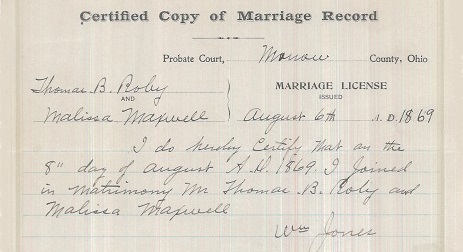 Certified Copy of Marriage Record
Probate Court, Morrow County, Ohio
Thomas B. Roby
AND
Malissa Maxwell
MARRIAGE LICENSE
ISSUED
August 6th A.D. 1869
I do hereby Certify that on the
8" day of August A.D. 1869 I Joined
in Matrimony Mr Thomas B. Roby and
Malissa Maxwell
Wm Jones